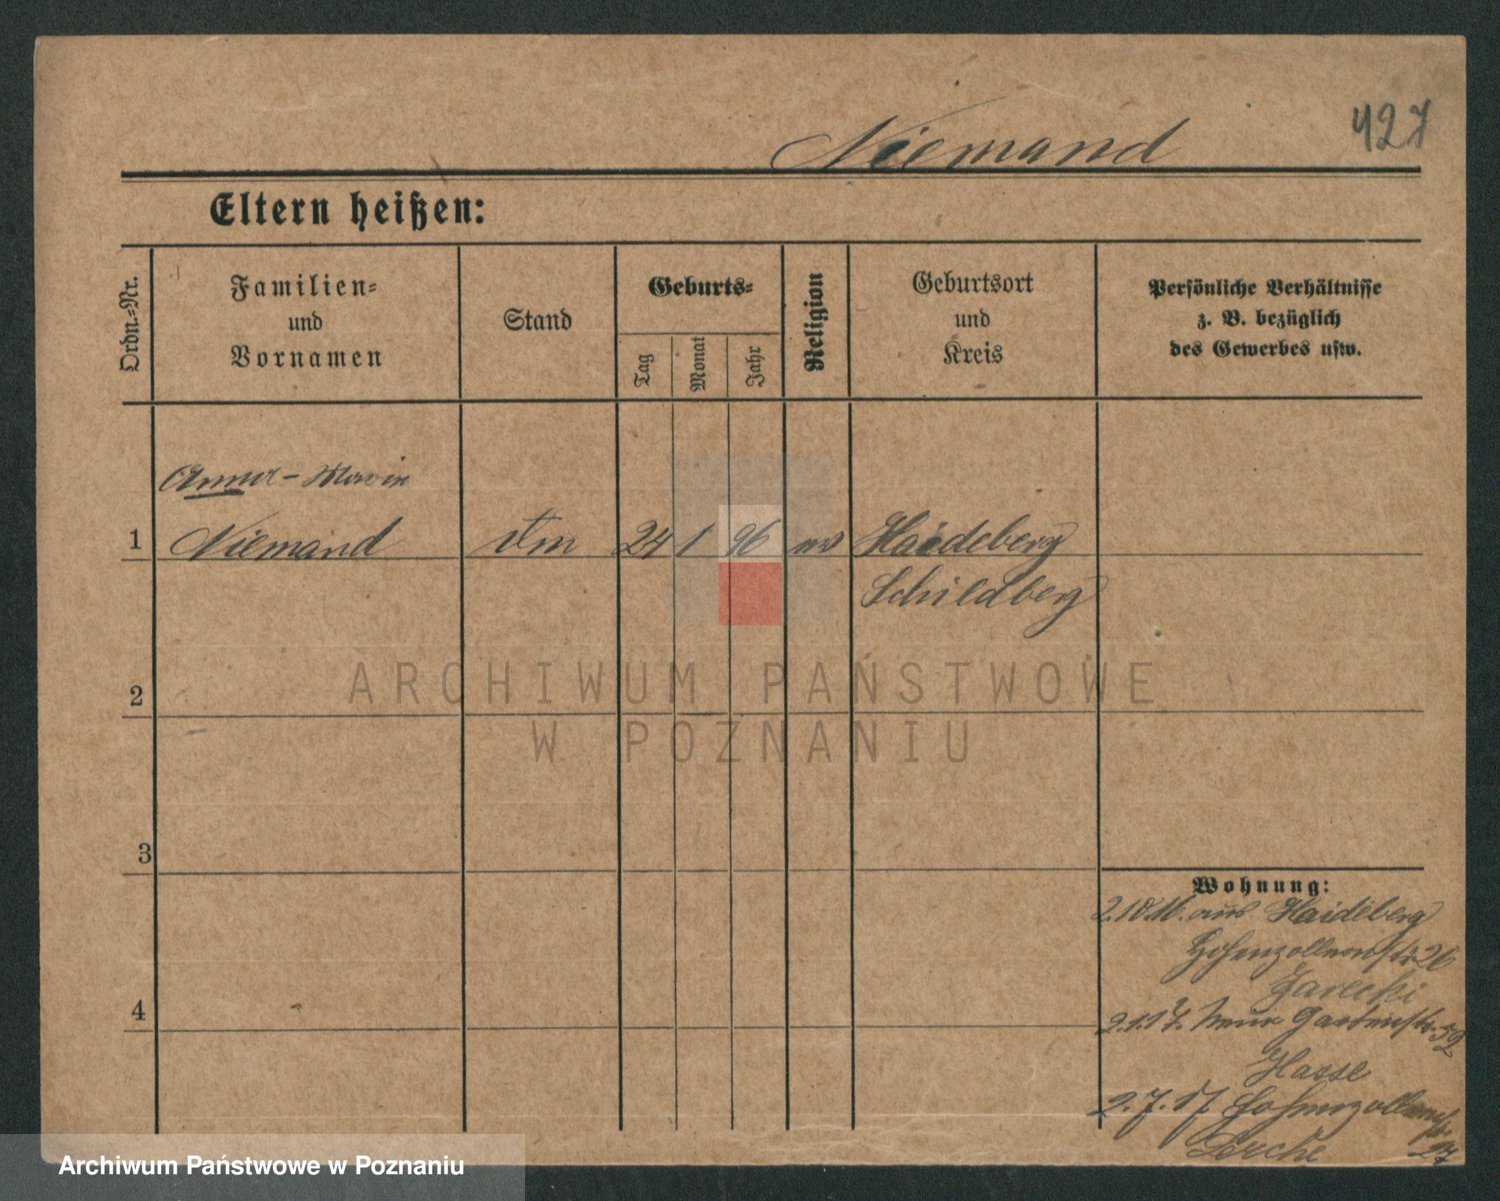 427
Niemand
Eltern heißen:
Ordn.-Nr.
Familien-
und
Vornamen
Stand
Geburts-
Tag
Monat
Jahr
Religion
Geburtsort
und
Kreis
Persönliche Verhältnisse
z. B. bezüglich
des Gewerbes usw.
Anna-Marie
1 Niemand 24 1 96 Haideberg
Schildberg
2
3
4
Wohnung:
2.10.16. aus Haideberg
Hohenzollernstr 26
Jarecki
2.1.17. Neue Gartenstr. 52
Hasse
2.7.17. Hohenzollernstr
27
Lerche
ARCHIWUM PAŃSTWOWE
W POZNANIU
Archiwum Państwowe w Poznaniu